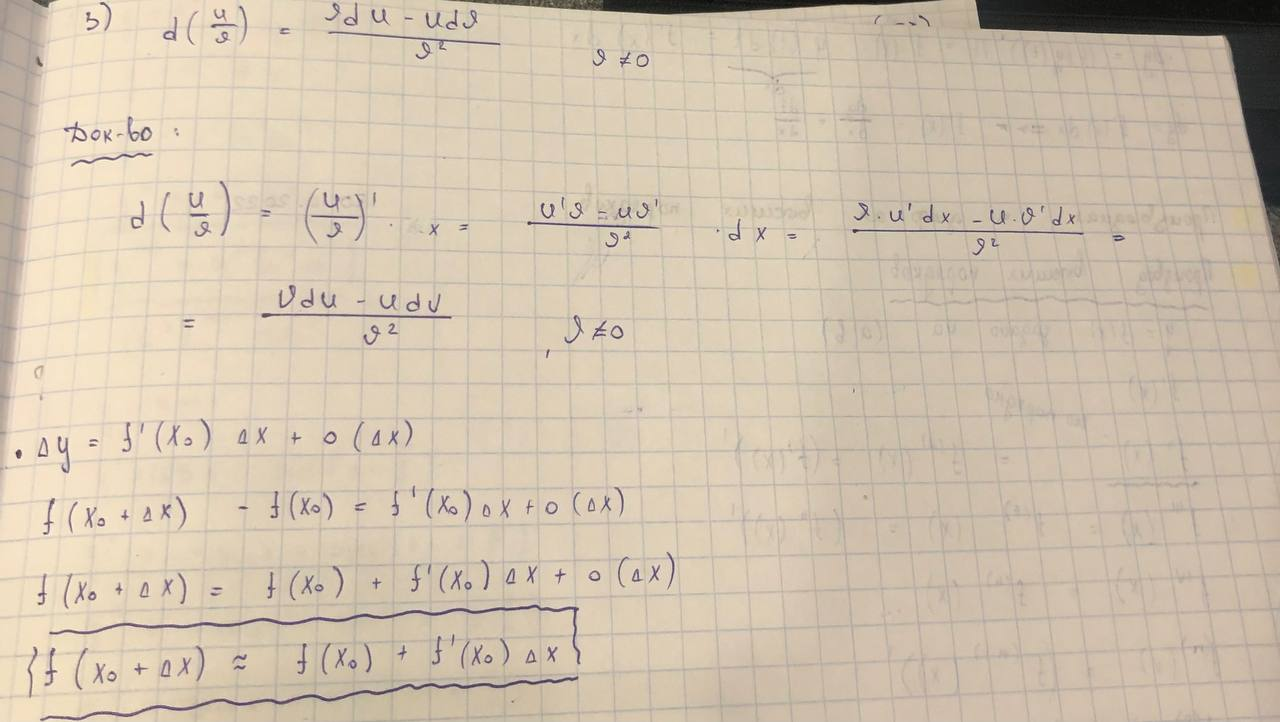 3) d(u/v) = (vdu - udv)/v² v ≠ 0
Док-во :
d(u/v) = (u/v)' · x = (u'v = uv')/v² · dx = (v·u'dx - u·v'dx)/v² =
= (vdu - udv)/v² , v ≠ 0
• Δy = f'(x₀) Δx + o(Δx)
f(x₀ + Δx) - f(x₀) = f'(x₀)Δx + o(Δx)
f(x₀ + Δx) = f(x₀) + f'(x₀) Δx + o(Δx)
{f(x₀ + Δx) ≈ f(x₀) + f'(x₀) Δx}